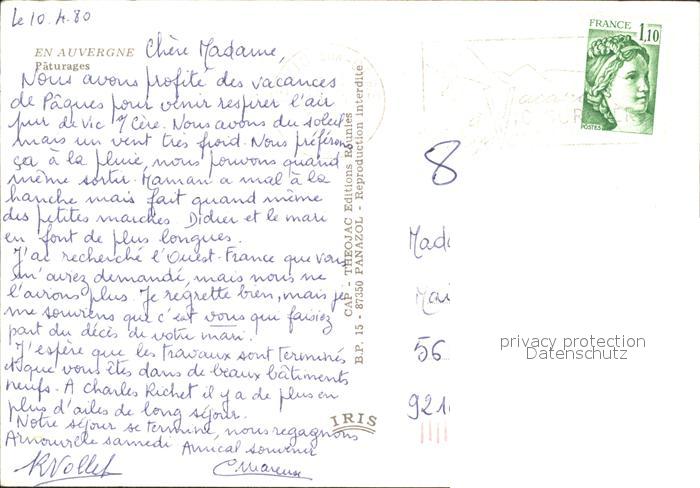 Le 10.4.80
EN AUVERGNE
Pâturages
Chère Madame,
Nous avons profité des vacances
de Pâques pour venir respirer l'air
pur de Vic s/ Cère. Nous avons du soleil
mais un vent très froid. Nous préférons
ça à la pluie, nous pouvons quand
même sortir. Maman a mal à la
hanche mais fait quand même
des petites marches. Didier et le mari
en font de plus longues.
J'ai recherché l'Ouest-France que vous
m'aviez demandé, mais nous ne
l'avions plus. Je regrette bien, mais je
me souviens que c'est vous qui faisiez
part du décès de votre mari.
J'espère que les travaux sont terminés
et que vous êtes dans de beaux bâtiments
neufs. A Charles Richet il y a de plus en
plus d'ailes de long séjour.
Notre séjour se termine, nous regagnons
Arnouville samedi Amical souvenir
CAP - THEOJAC Editions Réunies
B.P. 15 - 87350 PANAZOL - Reproduction interdite
IRIS
FRANCE
1,10
POSTES
8
Mada
Mai
56
921
privacy protection
Datenschutz